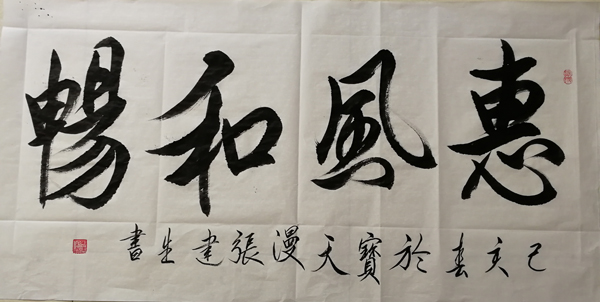 惠風和暢
己亥春於寶天漫張建生書